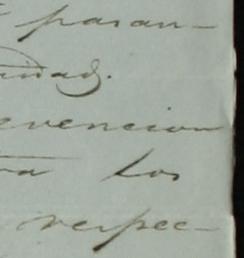 pasan-
idad.
evencion
ra los
respec-